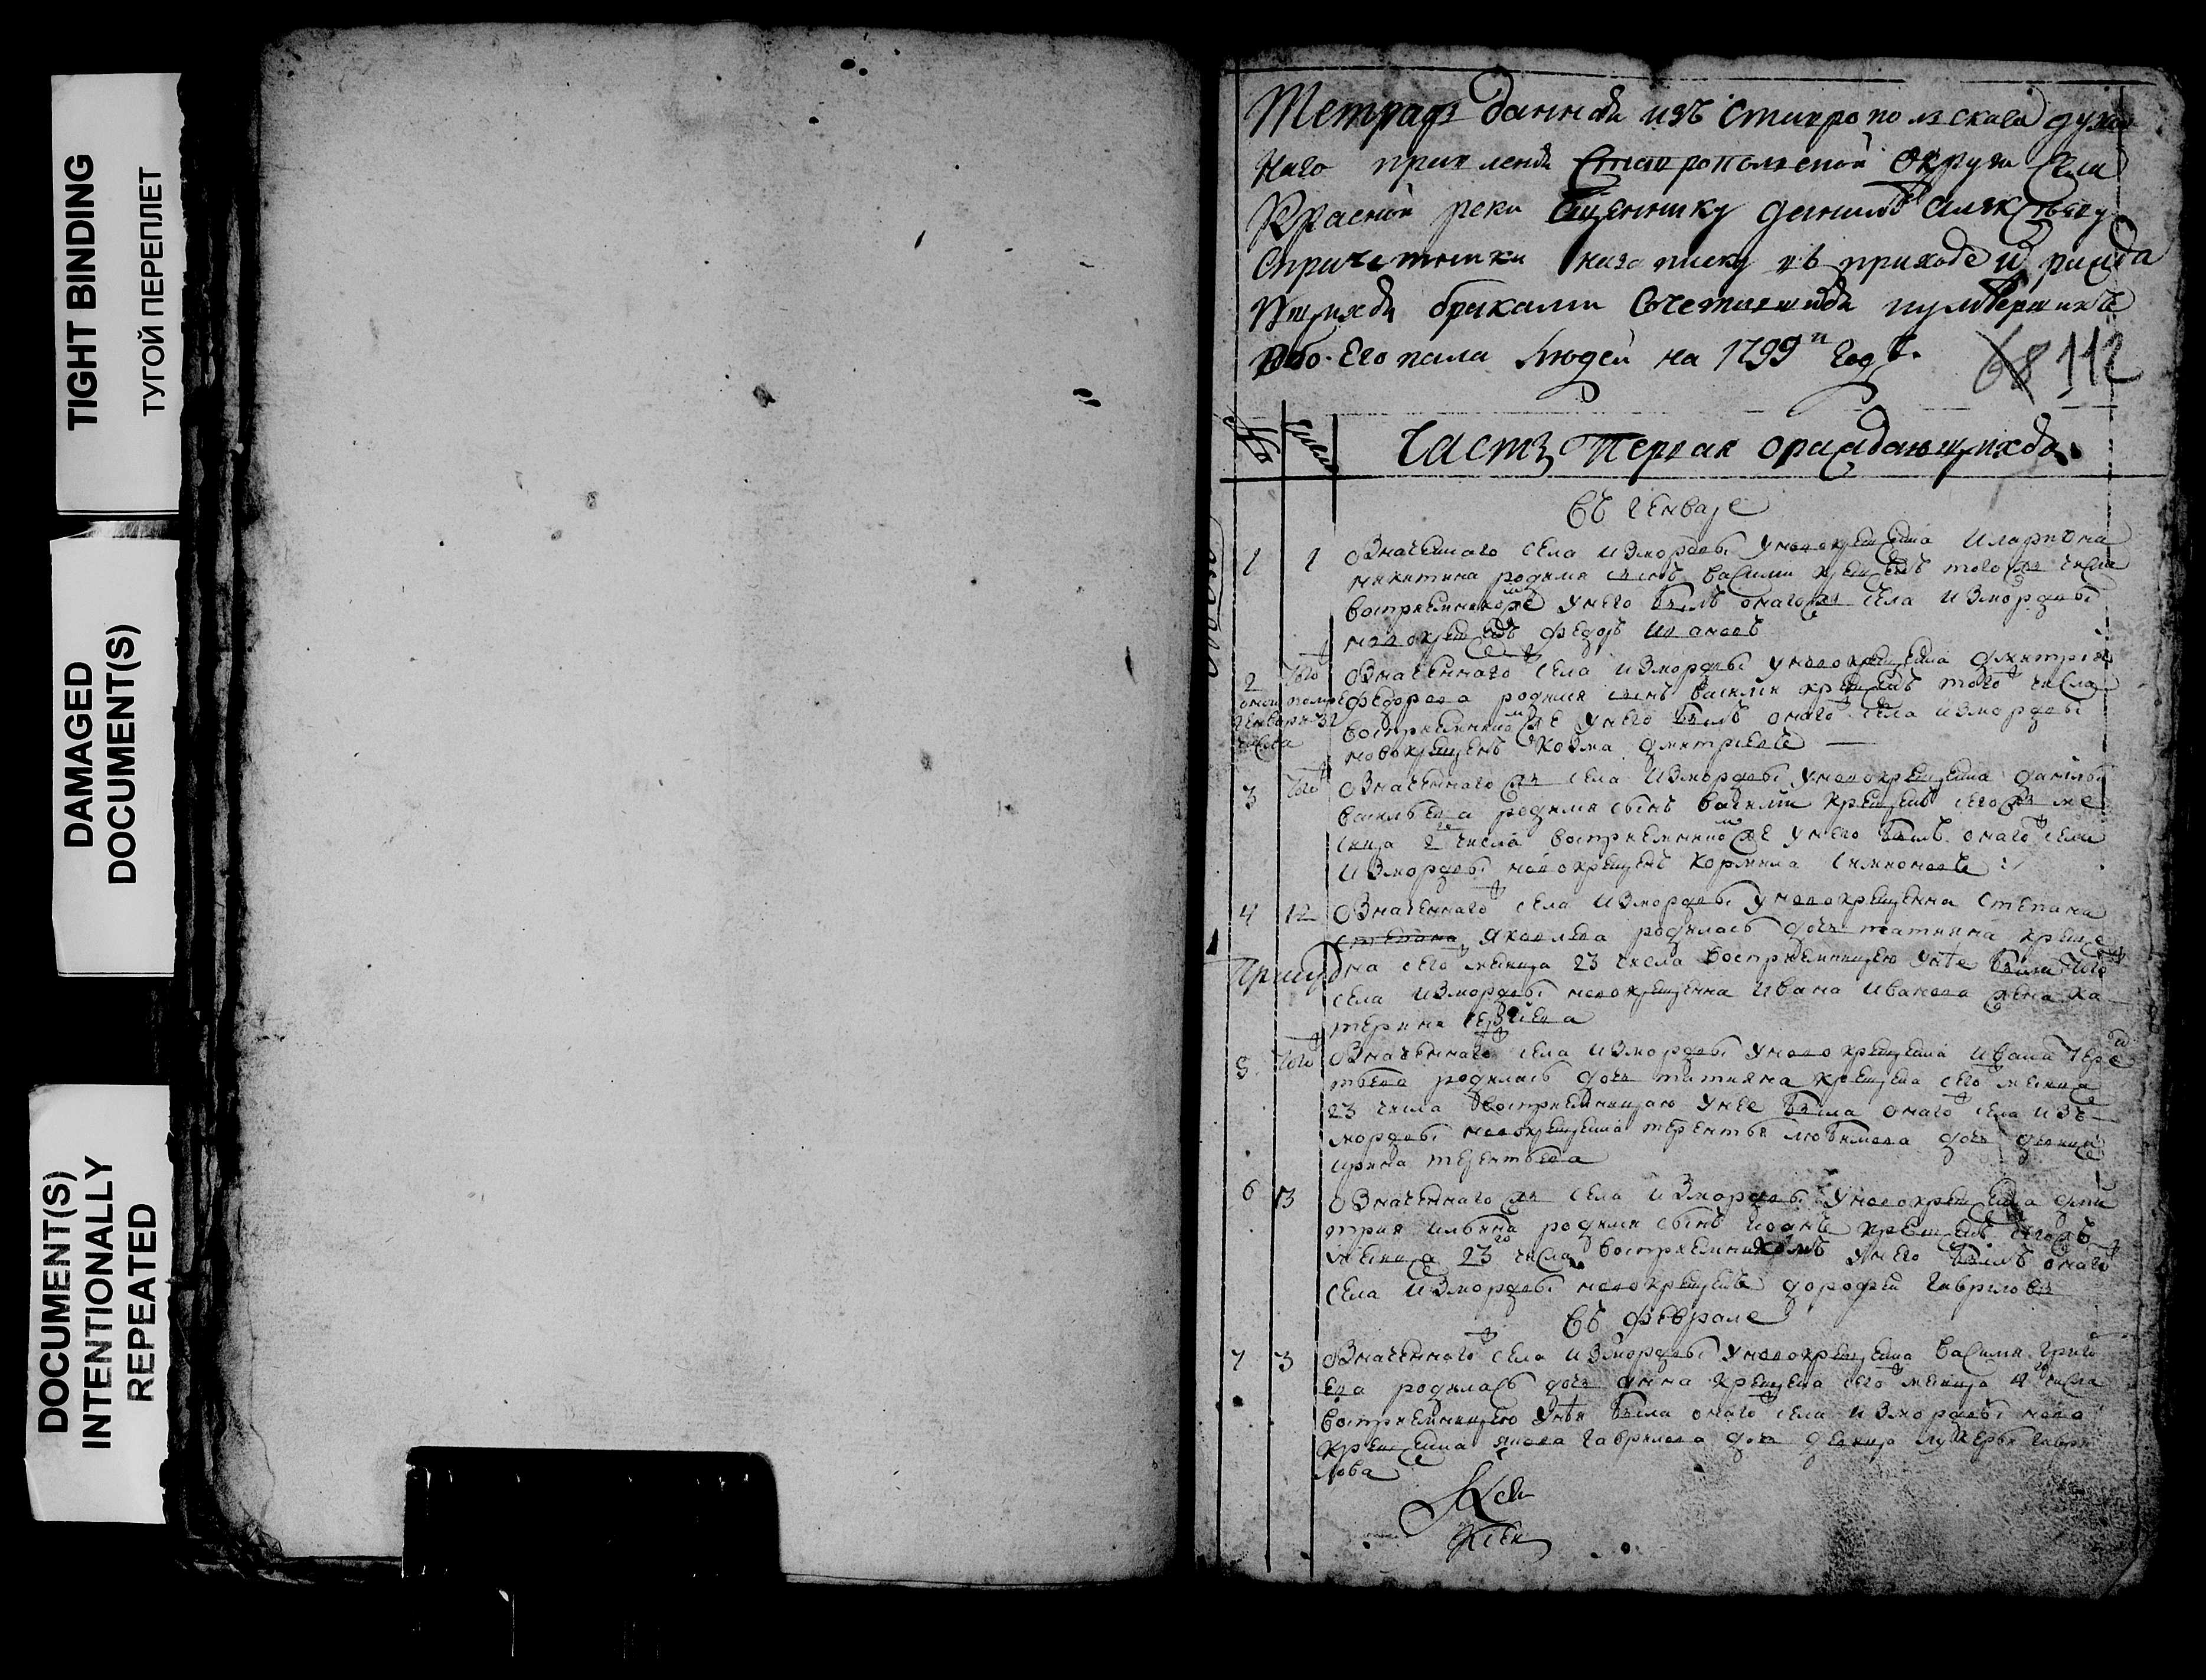 TIGHT BINDING
ТУГОЙ ПЕРЕПЛЕТ
DAMAGED
DOCUMENT(S)
DOCUMENT(S)
INTENTIONALLY
REPEATED
Тетрадь данная изъ Ставропольскаго духов
наго правления Ставропольской округи села
Красной реки Священнику данилѣ алексѣеву
Спричетники на записку въ приходе ИХ ражда
ющихся браками Сочетавшихся иумершихъ
Обо-его пола людей на 1799й годъ.
68 112
№ Числа Часть Первая ораждающихся.
Въ Генваре
1 1 Означеннаго села изморdвы уновокрещена илариона
никитина родился сынъ василии крещенъ тогожъ числа
восприемникомже унего былъ онагожъ села измордвы
новокрещенъ федоръ ивановъ
2 того Означеннаго села измордвы уновокрещена дмитрия
федорова родился сынъ василии крещенъ того числа
восприемникомже унего былъ онаго села измордвы
новокрещенъ козма дмитриевъ
3 того Означеннагожъ села измордвы уновокрещена данилы
васильева родился сынъ василии крещенъ сегожъ ме
сица 2го числа восприемникомже унего былъ онаго села
измордвы новокрещенъ корнила симионовъ
4 12 Означеннаго села измордвы уновокрещенна степана
степана яковлева родилась дочь татиана креще
на сего месица 23 числа восприемницею унѣе была того
села измордвы новокрещенна ивана иванова жена ка
терина
5 того Означеннаго села измордвы уновокрещена ивана
родилась дочь титияна крещена сего месица
23 числа восприемницаю унее была онаго села изъ
мордвы новокрещена терентья любимова дочь девица
ирина терентьева
6 13 Означеннагожъ села измордвы уновокрещена дми
трия ильина родился сынъ иоанъ крещенъ сегожъ
месица 23го числа восприемникомъ унего былъ онаго
села измордвы новокрещенъ дорофеи гавриловъ
Въ феврале
7 3 Означеннаго села измордвы уновокрещена василия григо
ева родилась дочь анна крещена сего месица 4го числа
восприемницею унѣя была онаго села измордвы ново
крещенна якова гаврилова дочь девица лукерья гаври
лова